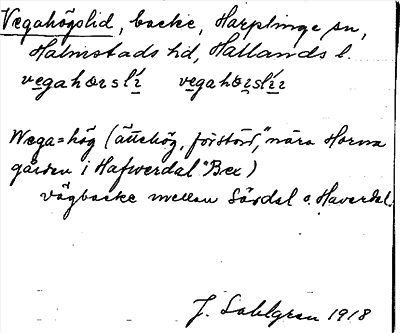 Vegahögslid, backe, Harplinge sn,
Halmstads hd, Hallands l.
Wega=hög (ättehög, förstörd, "nära Horna
gården i Hafverdal" Bex)
vägbacke mellan Särdal o. Haverdal.
J. Sahlgren 1918